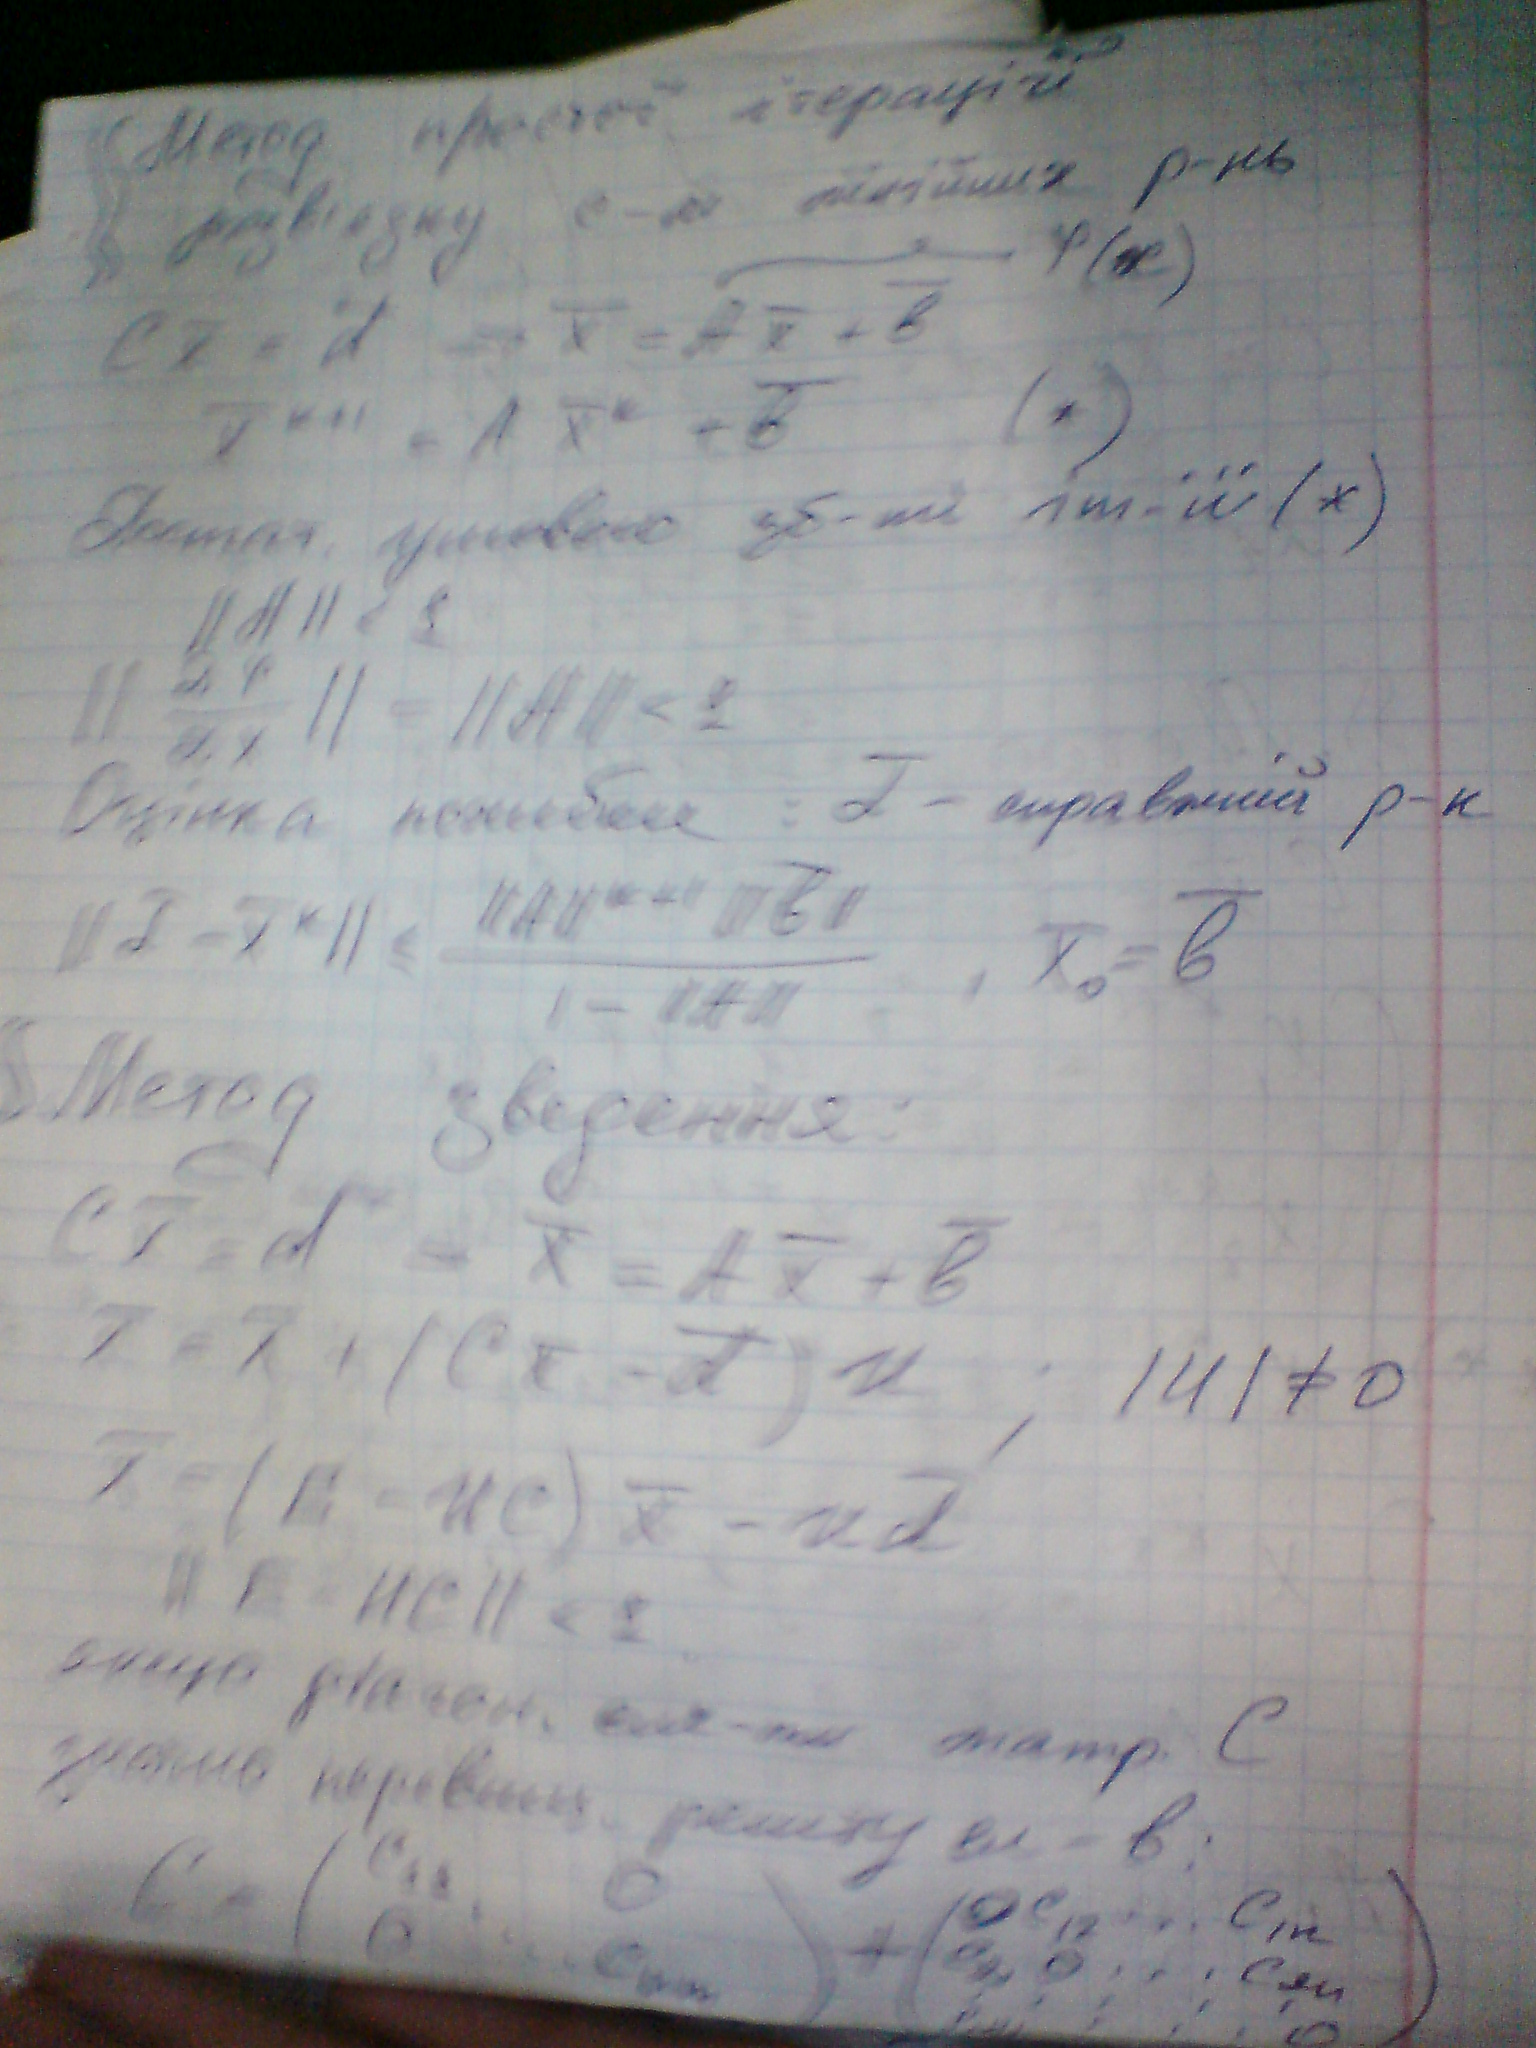 Метод простої ітерацій
розв'язку с-м лінійних р-нь
φ(x)
C x̄ = d̄ → x̄ = A x̄ + b̄
x̄ᵏ⁺¹ = A x̄ᵏ + b̄ (*)
Достат. умова зб-ті іт-ій (*)
||A|| < 1
||dφ/dx|| = ||A|| < 1
Оцінка похибки : d̄ - справжній р-к
||d̄ - x̄ᵏ|| ≤ ||A||ᵏ⁺¹ ||b̄|| / (1 - ||A||) , x̄₀ = b̄
Метод зведення:
C x̄ = d̄ → x̄ = A x̄ + b̄
x̄ = x̄ + (C x̄ - d̄) И ; |И| ≠ 0
x̄ = (E - ИC) x̄ - И d̄
||E - ИC|| < 1
якщо діагон. ел-ти матр. C
значно перевищ. решту ел-в:
C = (C₁₁ 0 ) + (0 C₁₂ ... C₁ₙ)
0 ... Cₙₙ C₂₁ 0 ... C₂ₙ
0